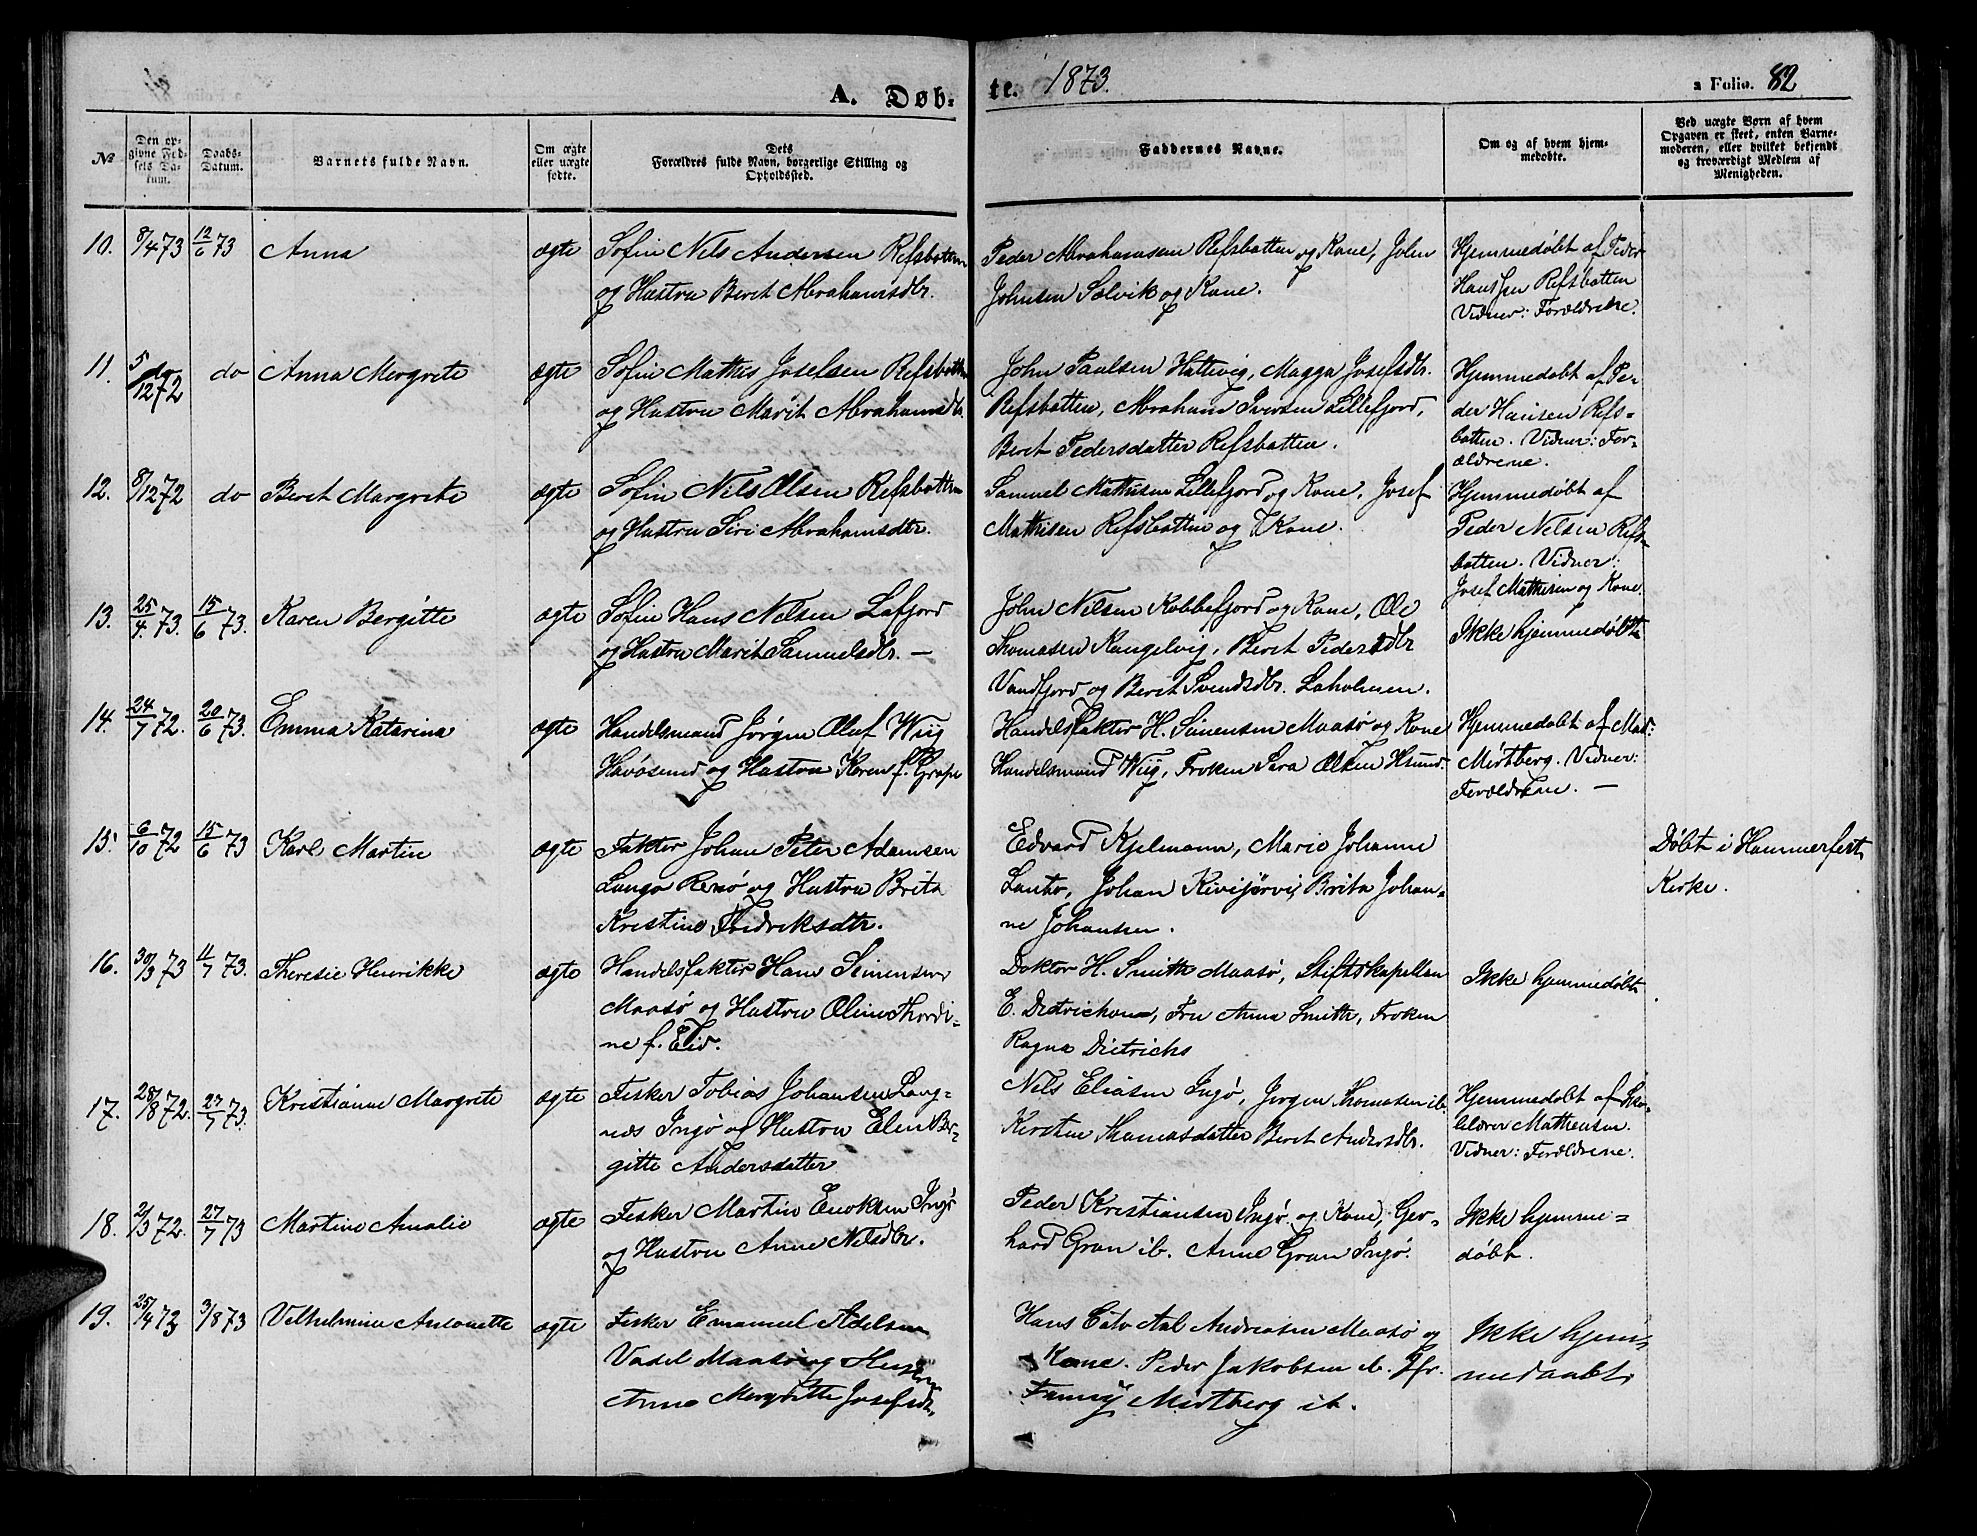 A. Døb-
te. 1873.
a Folio. 82
No
Den op-
givne Fød-
sels Da-
tum.
Daabs-
Datum.
Barnets fulde Navn.
Om ægte
eller uægte
fødte.
Dets
Forældres fulde Navn, borgerlige Stilling og
Opholdssted.
Faddernes Navne.
Om og af hvem hjem-
medøbte.
Ved uægte Børn af hvem
Opgaven er skeet, enten Barne-
moderen, eller hvilket bekjendt
og troværdigt Medlem af
Menigheden.
10. 8/4 73 12/6 73 Anna ægte
Sofin Nils Andersen Refsbotten
og Hustru Beret Abrahamsdtr.
Peder Abrahamsen Refsbotten og Kone, John
Johnsen Selvik og Kone.
Hjemmedøbt af Peder
Hansen Refsbotten
Vidner: Forældrene.
11. 5/12 72 do Anna Mergrete ægte
Sofin Mathis Josefsen Refsbotten
og Hustru Marit Abrahamsdtr.
John Paulsen Hattevig, Magga Josefsdtr.
Refsbotten, Abraham Iversen Lillefjord,
Beret Pedersdatter Refsbotten.
Hjemmedøbt af Pe-
der Hansen Refs-
botten. Vidner: For-
ældrene.
12. 8/12 72 do Beret Margrete ægte
Sofin Nils Olsen Refsbotten
og Hustru Siri Abrahamsdtr.
Samuel Mathisen Lillefjord og Kone, Josef
Mathisen Refsbotten og Kone.
Hjemmedøbt af
Peder Nilsen Refs-
botten. Vidner:
Josef Mathisen og Kone.
13. 25/4 73. 15/6 73. Karen Bergitte ægte
Sofin Hans Nilsen Lafjord
og Hustru Marit Samuelsdtr. —
John Nilsen Kobbefjord og Kone, Ole
Thomasen Kangelvig, Beret Pedersdtr
Vandfjord og Beret Svendsdtr. Laholmen.
Ikke hjemmedøbt
14. 24/7 72. 20/6 73. Emma Katarina ægte
Handelsmand Jørgen Oluf Wiig
Havøsund og Hustru Karen f. Grape
Handelsfaktor H. Simensen Maasø og Kone
Handelsmand Wiig, Frøken Sara Olsen Hsund.
Hjemmedøbt af Mad:
Mirtberg. Vidner:
Forældrene. —
15. 6/10 72 15/6 73 Karl Martin ægte
Faktor Johan Peter Adamsen
Lango Rersø og Hustru Brita
Kristine Fredriksdtr.
Edvard Kjelmann, Marie Johanne
Lanto, Johan Kivijervi, Brita Johan-
ne Johansen.
Døbt i Hammerfest
Kirke.
16. 30/3 73 11/7 73. Theresie Henrikke ægte
Handelsfaktor Hans Simensen
Maasø og Hustru Oline Thordi-
ne f. Eid.
Doktor H. Smith Maasø, Stiftskapellan
E. Dietrichson, Fru Anna Smith, Frøken
Ragna Dietrichs
Ikke hjemmedøbt
17. 28/8 72. 27/7 73. Kristianne Margrete ægte
Fisker Tobias Johansen Lang-
nes Ingø og Hustru Elen Ber-
gitte Andersdatter
Nils Eliasen Ingø, Jørgen Thomasen ib.
Kirsten Thomasdatter Beret Andersdtr.
Hjemmedøbt af Sko-
lelærer Mathiesen.
Vidner: Forældrene.
18. 21/3 72. 27/7 73 Martine Amalie ægte
Fisker Martin Enoksen Ingø
og Hustru Anne Nilsdtr.
Peder Kristiansen Ingø og Kone, Ger-
hard Gran ib. Anne Gran Ingø.
Ikke hjemme-
døbt.
19. 25/4 73 3/8 73 Vilhelmine Antonette ægte
Fisker Emanuel Adelsen
Vadel Maasø og Hustru
Anne Mergritte Josefsdtr.
Hans Andreasen Maasø og
Kone. Peder Jakobsen ib. Jfr.
Fanny Mirtberg ib.
Ikke hjem-
medaabt.